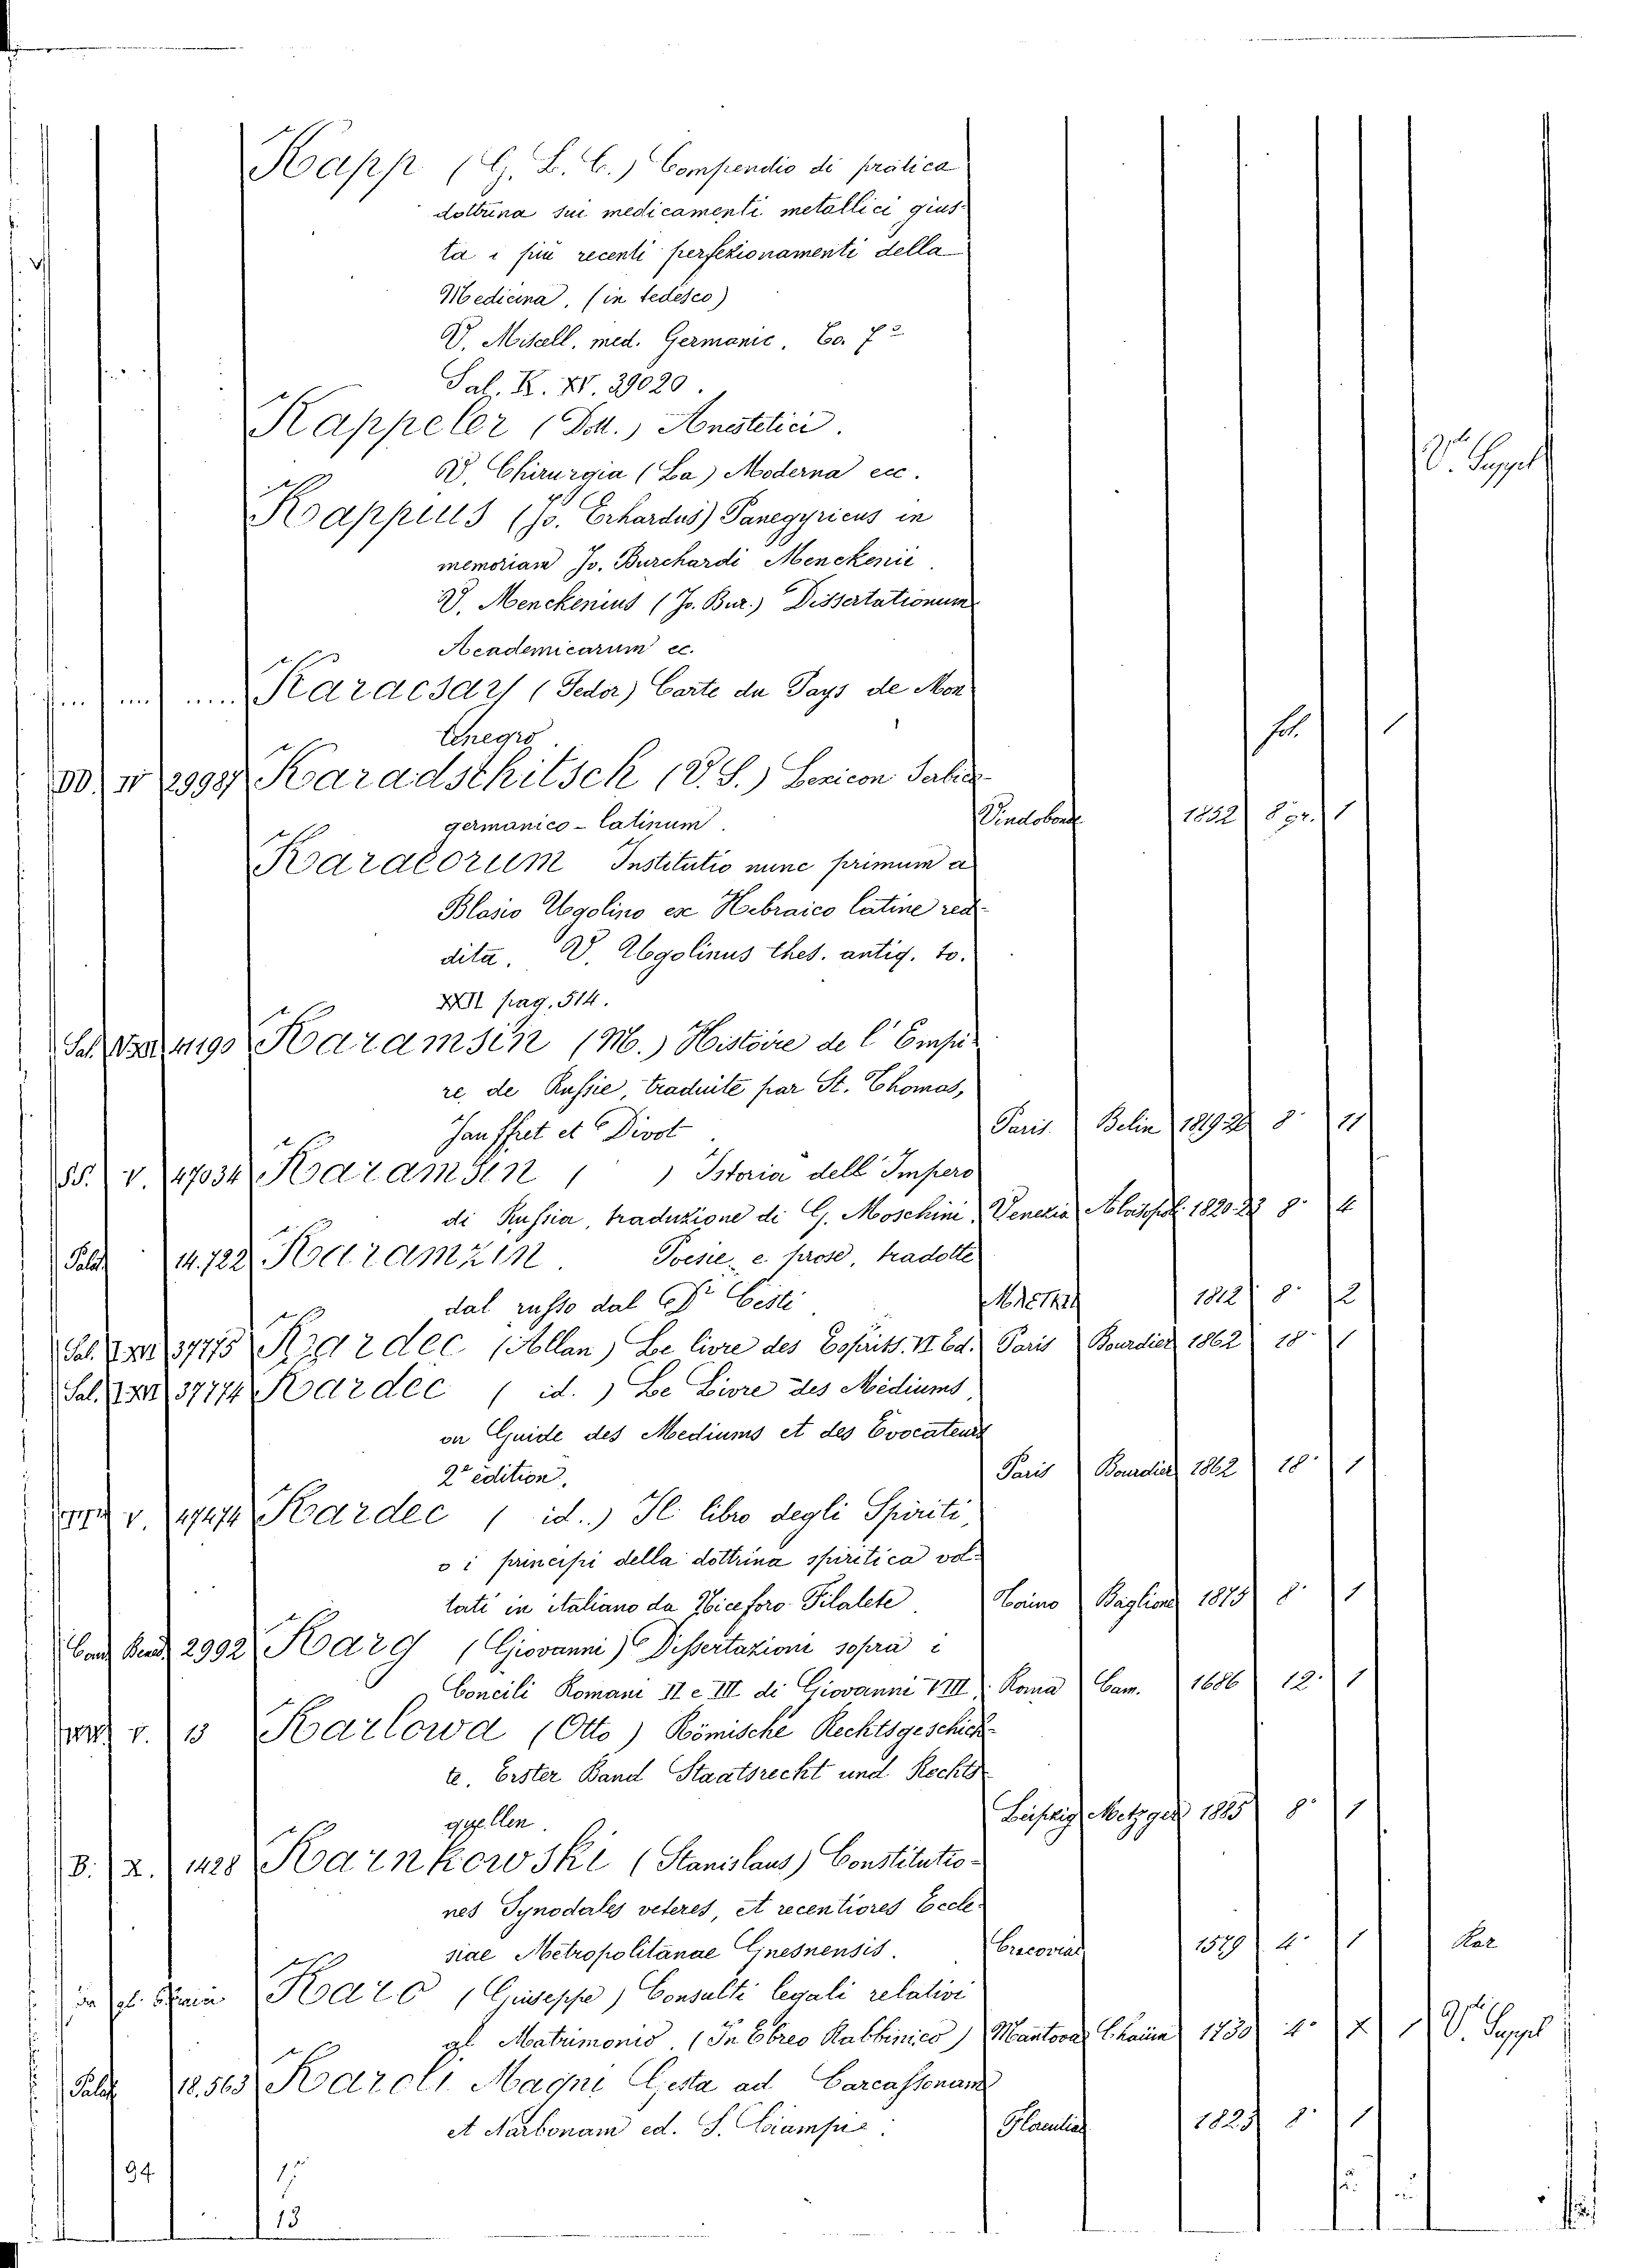 Kapp (G. L. C.) Compendio di pratica
dottrina sui medicamenti metallici gius-
ta i più recenti perfezionamenti della
Medicina, (in tedesco)
V. Miscell. med. Germanic. Co. 7º
Sal. K. XV. 39020.
Kappeler (Dott.) Anestetici.
V. Chirurgia (La) Moderna ecc. V. Suppl
Kappius (Jo. Erhardus) Panegyricus in
memoriam Jo. Burchardi Menckenii.
V. Menckenius (Jo. Bur.) Dissertationum
Academicarum ec.
Karacsay (Fedor) Carte du Pays de Mon
tenegro fol. 1
M. IV 29987 Karadschitsch (V. S.) Lexicon Serbico-
germanico-latinum. Vindobonae 1852 8 gr. 1
Karaeorum Institutio nunc primum a
Blasio Ugolino ex Hebraico latine red-
dita. V. Ugolinus thes. antiq. to.
XXII pag. 514.
Sal. 41190 Karamsin (M.) Histoire de l'Empi-
re de Russie, traduite par St. Thomas,
Jauffret et Divot Paris Belin 1819-26 8º 11
SS. V. 47034 Karamsin ( ) Istoria dell'Impero
di Russia, traduzione di G. Moschini, Venezia 1820-22 8º 4
Palat 14.722 Karamzin. Poesie e prose, tradotte
dal russo dal Dr Cesti 1812 8º 2
Sal. 37775 Kardec (Allan) Le livre des Esprits. VI Ed. Paris Bourdier 1862 18º 1
Sal. 37774 Kardec (id.) Le Livre des Médiums,
ou Guide des Mediums et des Evocateurs
2e édition. Paris Bourdier 1862 18º 1
V. 47474 Kardec (id.) Il libro degli Spiriti,
o i principi della dottrina spiritica vol-
tati in italiano da Niceforo Filalete. Torino Baglione 1875 8º 1
2992 Karg (Giovanni) Dissertazioni sopra i
Concili Romani II e III di Giovanni VIII. Roma Cam. 1686 12º 1
V. 13 Karlowa (Otto) Römische Rechtsgeschich-
te. Erster Band Staatsrecht und Rechts
quellen. Leipzig Metzger 1885 8º 1
B. X. 1428 Karnkowski (Stanislaus) Constitutio-
nes Synodales veteres, et recentiores Eccle-
siae Metropolitanae Gnesnensis. Cracoviae 1579 4º 1 Kar
Karo (Giuseppe) Consulti legali relativi
al Matrimonio. (In Ebreo Rabbinico) Mantova 1730 4º V. Suppl
Palat 18.563 Karoli Magni Gesta ad Carcassonam
et Narbonam ed. S. Ciampi. 1823 8º 1
94 15
13